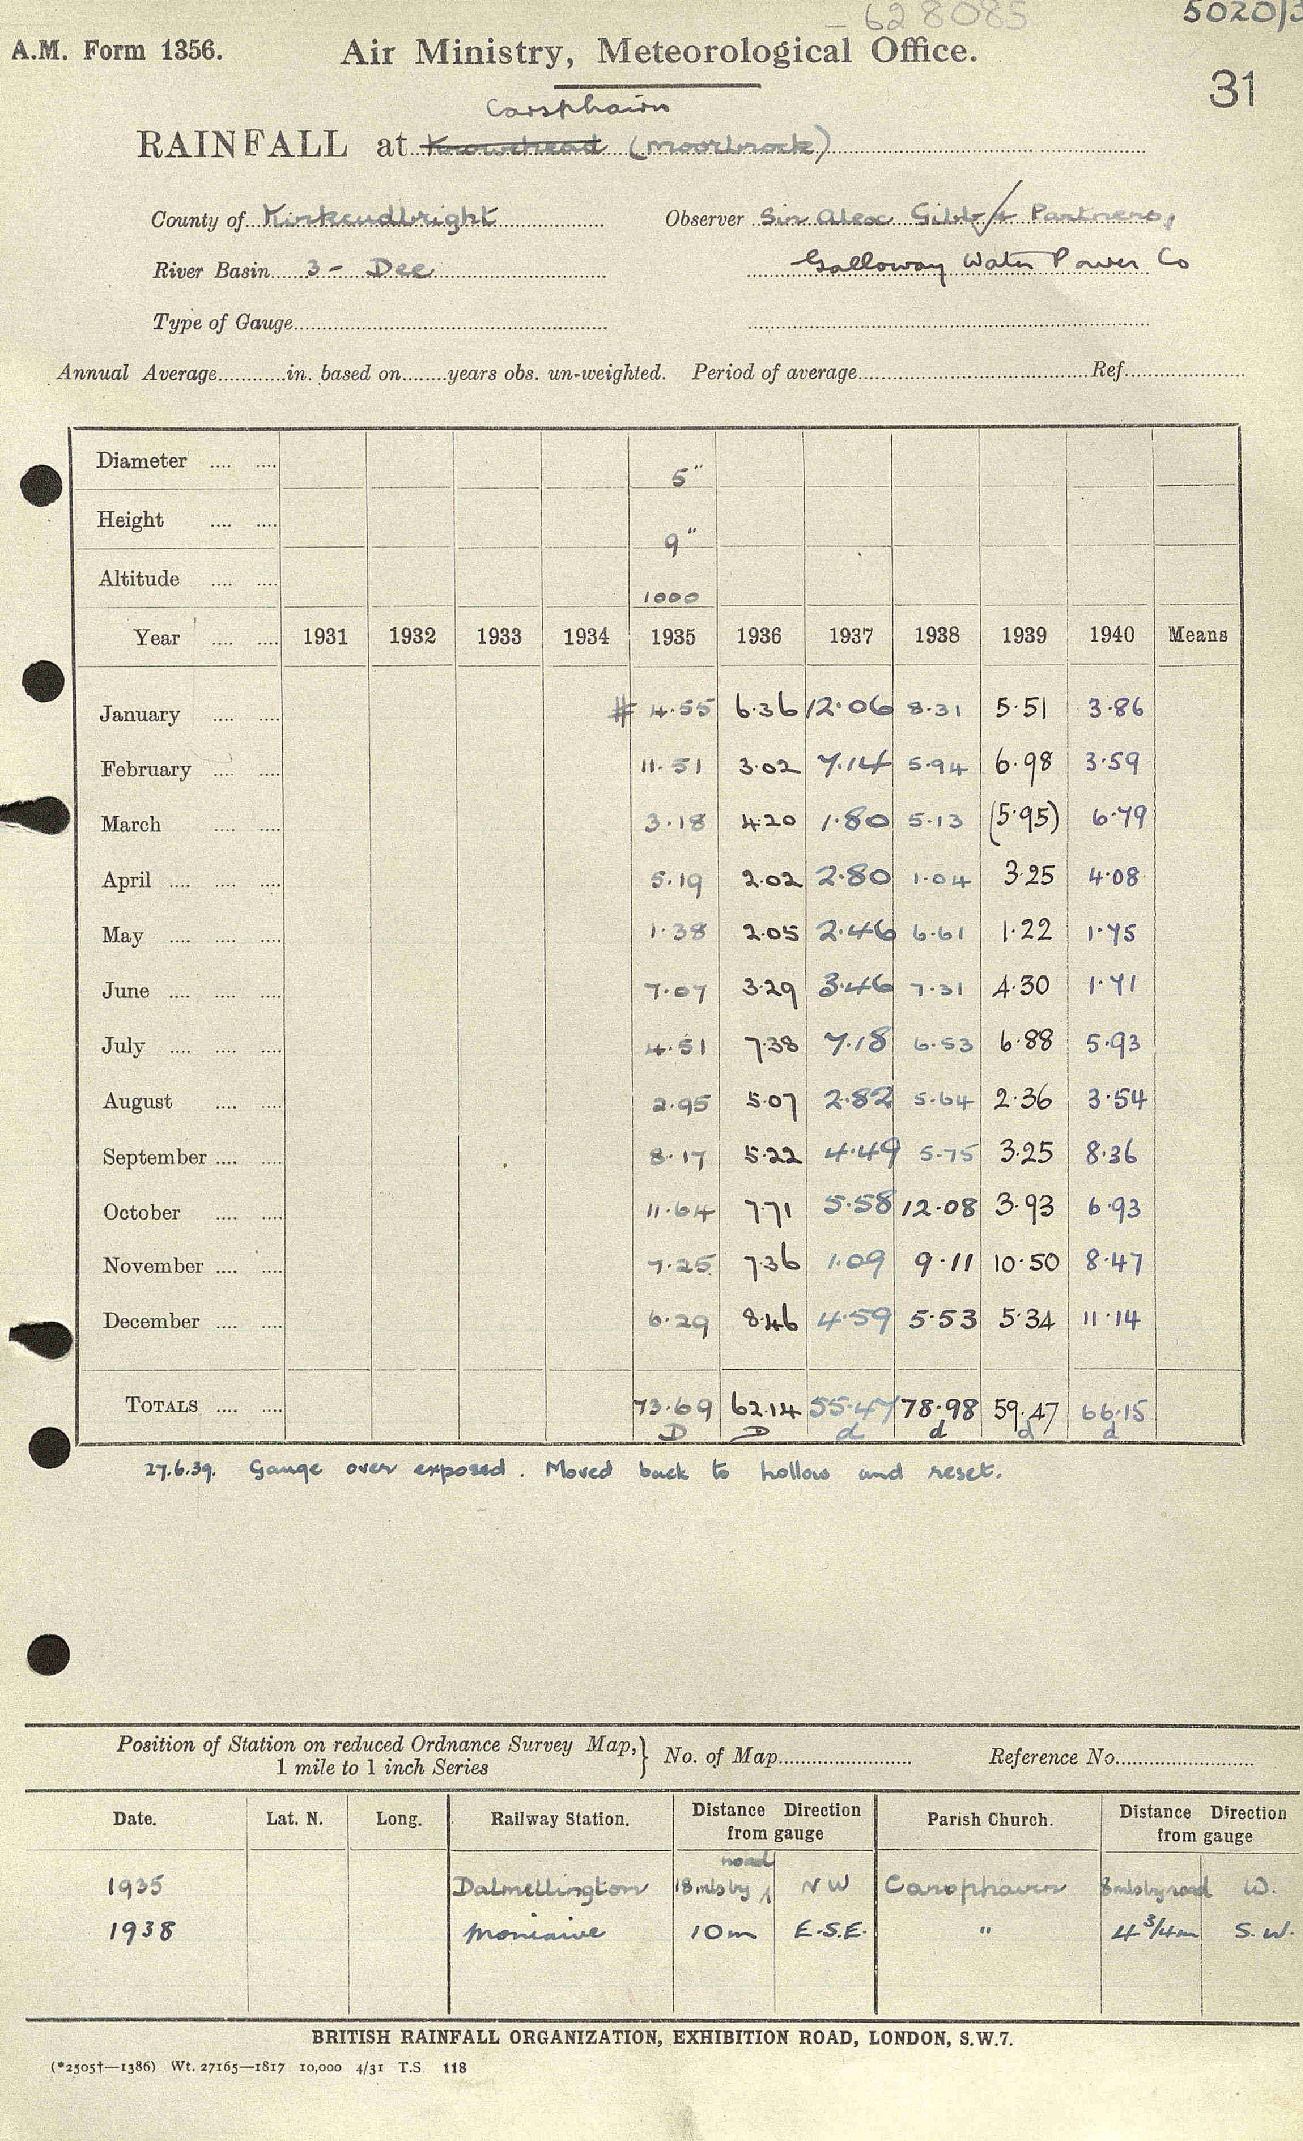 628085 5020/3
A.M. Form 1356. Air Ministry, Meteorological Office.
31
Carsphairn
RAINFALL at Knowehead (Moorbrock)
County of Kirkcudbright Observer Sir Alex Gibb & Partners,
River Basin 3 - Dee Galloway Water Power Co
Type of Gauge
Annual Average in. based on years obs. un-weighted. Period of average Ref.
Diameter 5"
Height 9"
Altitude 1000
Year 1931 1932 1933 1934 1935 1936 1937 1938 1939 1940 Means
January # 4.55 6.36 12.06 8.31 5.51 3.86
February 11.51 3.02 7.14 5.94 6.98 3.59
March 3.18 4.20 1.80 5.13 (5.95) 6.79
April 5.19 2.02 2.80 1.04 3.25 4.08
May 1.38 2.05 2.46 6.61 1.22 1.75
June 7.07 3.29 3.46 7.31 4.30 1.71
July 4.51 7.38 7.18 6.53 6.88 5.93
August 2.95 5.07 2.82 5.64 2.36 3.54
September 8.17 5.22 4.49 5.75 3.25 8.36
October 11.64 7.71 5.58 12.08 3.93 6.93
November 7.25 7.36 1.09 9.11 10.50 8.47
December 6.29 8.46 4.59 5.53 5.34 11.14
TOTALS 73.69 62.14 55.47 78.98 59.47 66.15
D D d d d d
27.6.39. Gauge over exposed. Moved back to hollow and reset.
Position of Station on reduced Ordnance Survey Map, 1 mile to 1 inch Series } No. of Map Reference No.
Date. Lat. N. Long. Railway Station. Distance Direction from gauge Parish Church. Distance Direction from gauge
1935 Dalmellington 18 mls by road NW Carsphairn 8 mls by road W.
1938 Moniaive 10m E.S.E. " 4 3/4m S.W.
BRITISH RAINFALL ORGANIZATION, EXHIBITION ROAD, LONDON, S.W.7.
(*2505†—1386) Wt. 27165—1817 10,000 4/31 T.S. 118